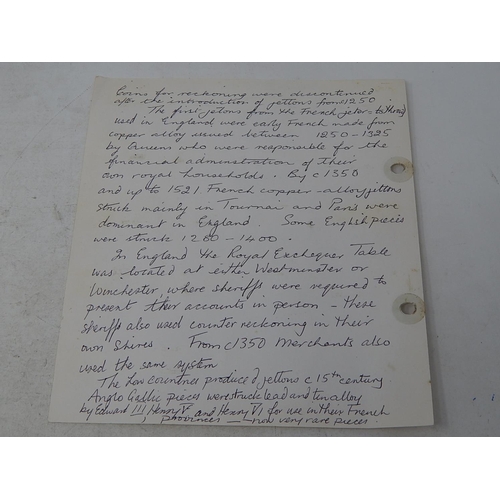 Coins for reckoning were discontinued
after the introduction of jettons from 1250
The first jetons from the French jeter = to throw
used in England were early French made from
copper alloy issued between 1250 – 1325
by Queens who were responsible for the
financial administration of their
own royal households. By c 1350
and up to 1521 French copper-alloy jettons
struck mainly in Tournai and Paris were
dominant in England. Some English pieces
were struck 1280 – 1400.
In England the Royal Exchequer Table
was located at either Westminster or
Winchester, where sheriffs were required to
present their accounts in person – these
sheriffs also used counter reckoning in their
own shires. From c1350 Merchants also
used the same system
The Low countries produced jettons c 15th century
Anglo Gallic pieces were struck lead and tin alloy
by Edward III, Henry V and Henry VI for use in their French
provinces — now very rare pieces.